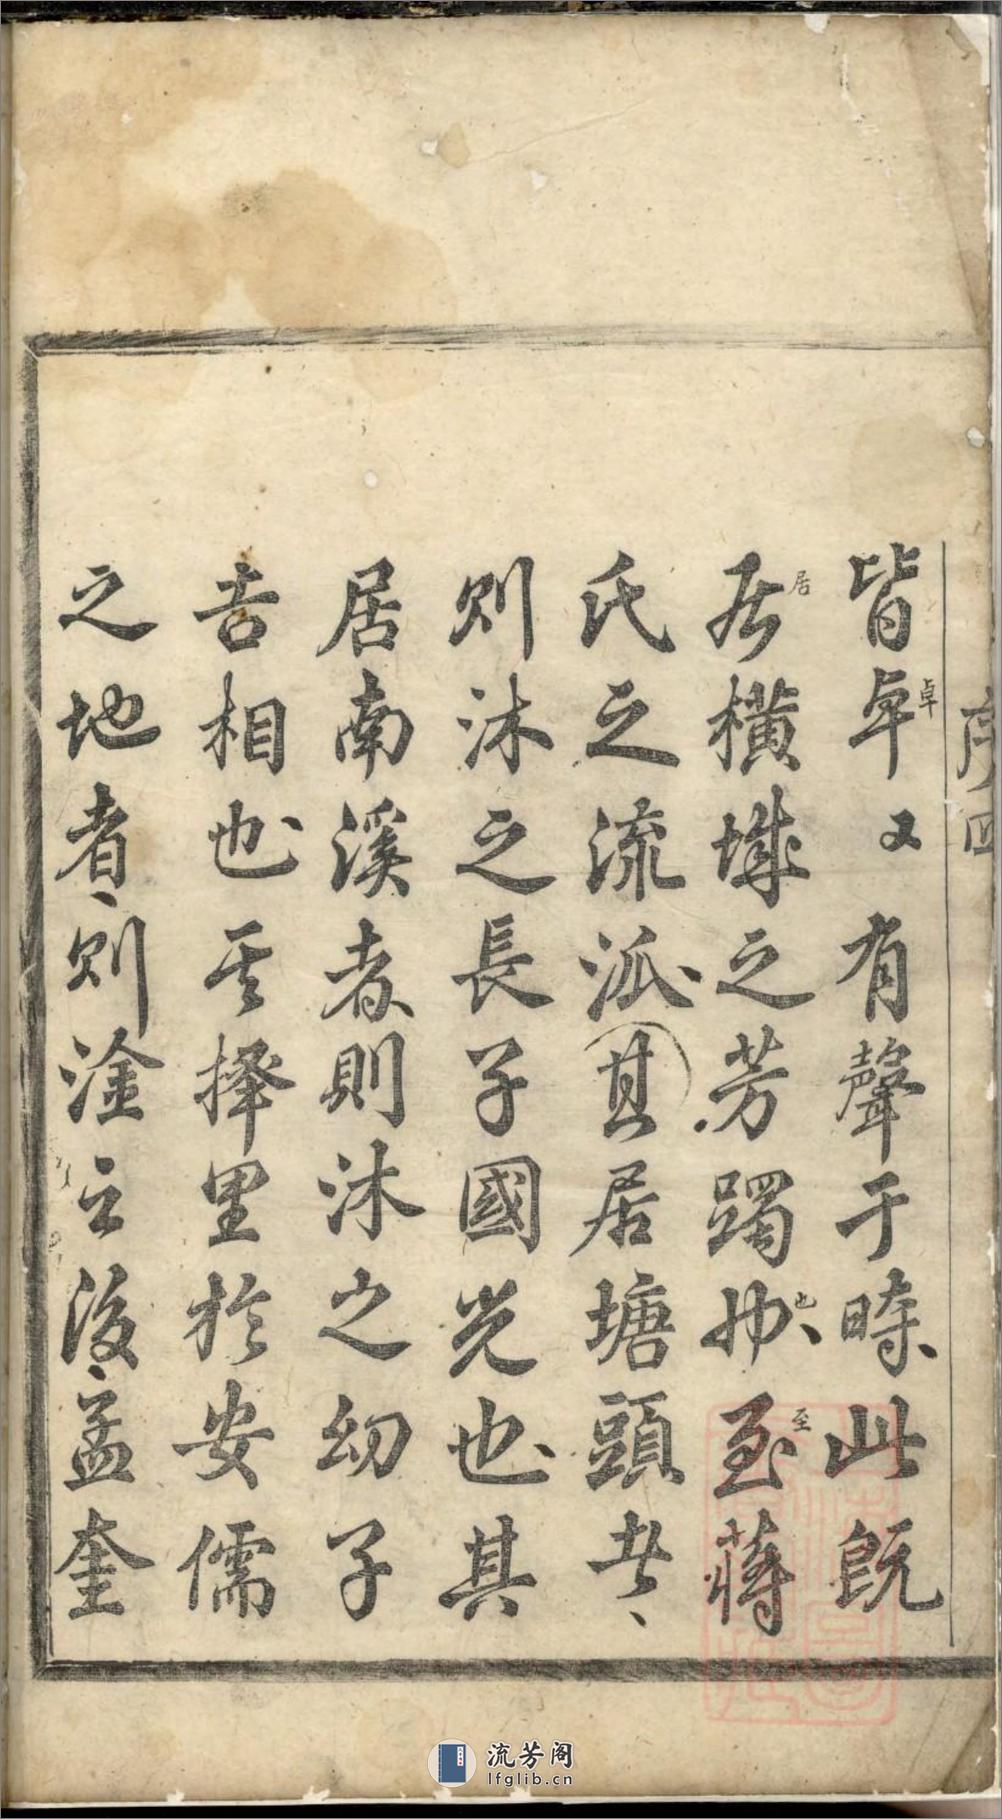 序四
皆卓卓卓又有聲于時此既
居居橫城之芳躅也也至至蔣
氏之流派其居塘頭者
则沐之長子國光也其
居南溪者則沐之幼子
吉相也其擇里於安儒
之地者则淦之後孟奎
流芳阁
lfglib.cn